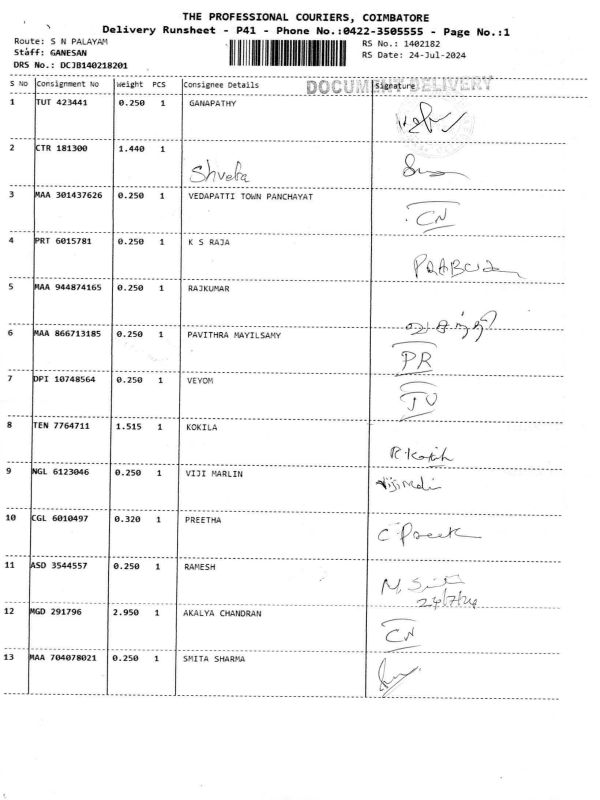 THE PROFESSIONAL COURIERS, COIMBATORE
Delivery Runsheet - P41 - Phone No.:0422-3505555 - Page No.:1
Route: S N PALAYAM
RS No.: 1402182
Staff: GANESAN
RS Date: 24-Jul-2024
DRS No.: DCJB140218201
DOCUMENT DELIVERY
S No Consignment No Weight PCS Consignee Details Signature
1 TUT 423441 0.250 1 GANAPATHY
2 CTR 181300 1.440 1
Shveta
3 MAA 301437626 0.250 1 VEDAPATTI TOWN PANCHAYAT
CN
4 PRT 6015781 0.250 1 K S RAJA
5 MAA 944874165 0.250 1 RAJKUMAR
6 MAA 866713185 0.250 1 PAVITHRA MAYILSAMY
PR
7 DPI 10748564 0.250 1 VEYOM
8 TEN 7764711 1.515 1 KOKILA
9 NGL 6123046 0.250 1 VIJI MARLIN
10 CGL 6010497 0.320 1 PREETHA
11 ASD 3544557 0.250 1 RAMESH
24/7/24
12 MGD 291796 2.950 1 AKALYA CHANDRAN
CN
13 MAA 704078021 0.250 1 SMITA SHARMA